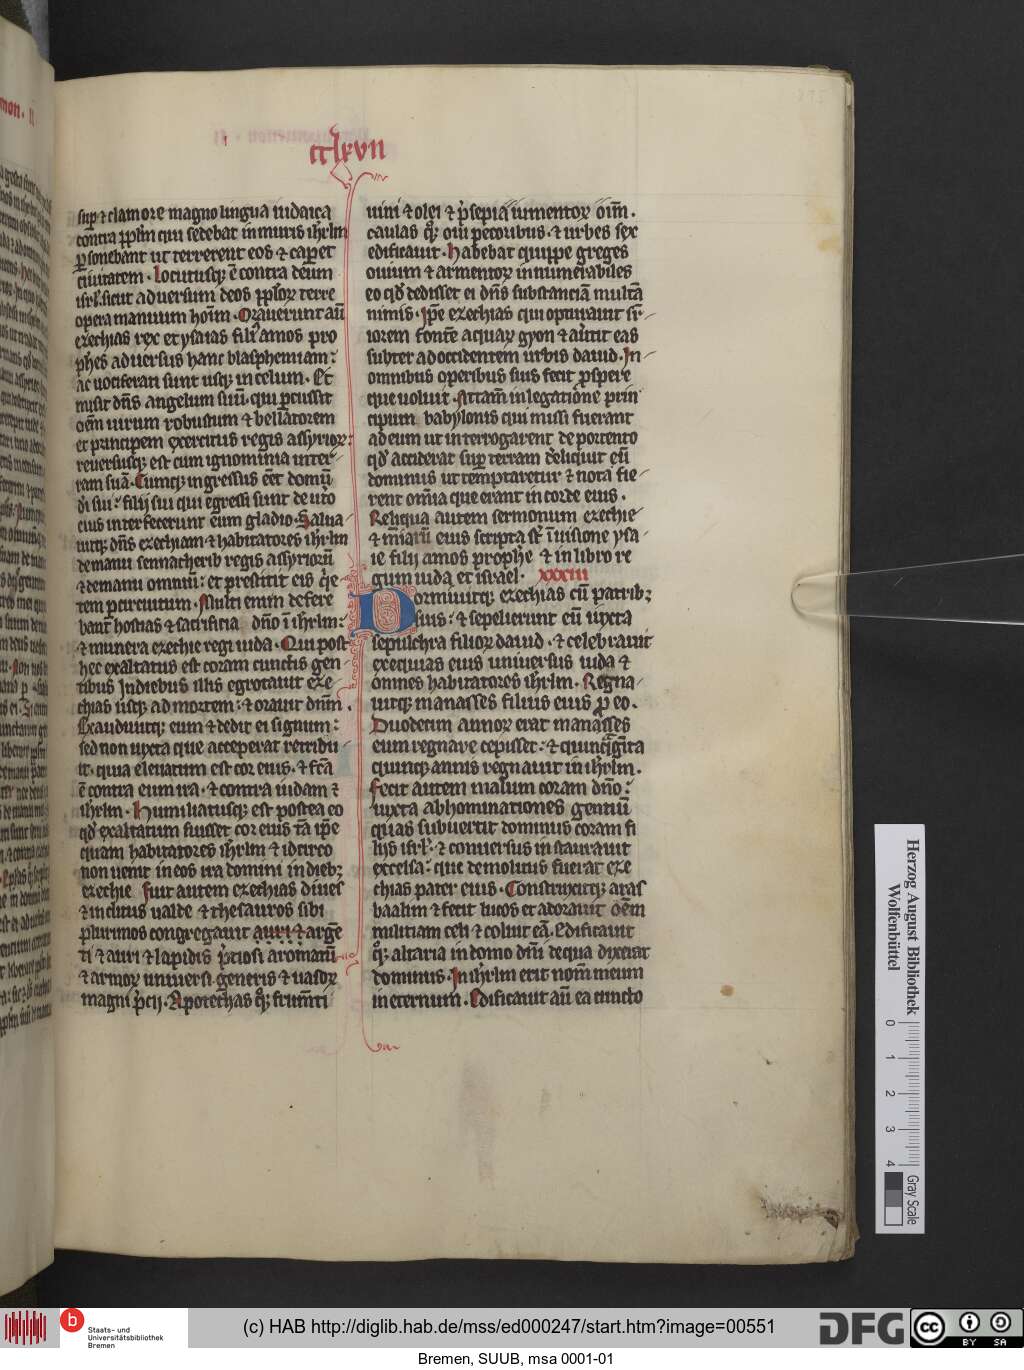 cclxvii
sup(er) ⁊ clamore magno lingua iudaica
contra pp̄lm qui sedebat in muris ih̄rlm
ꝑsonebant ut terrerent eos ⁊ caperet
ciuitatem. Locutusqꝫ ē contra deum
isrl̄. sicut aduersum deos pp̄lorꝝ terre
opera manuum hoīm. Orauerunt aū
ezechias rex et ysaias filiꝰ amos pro
phes aduersus hanc blasphemiam:
ac uociferati sunt usqꝫ in celum. Et
misit dn̄s angelum suū. qui pcussit
oēm uirum robustum ⁊ bellatorem
et principem exercitus regis assyriorꝝ:
reuersusqꝫ est cum ignominia inter-
ram suā. Cumqꝫ ingressus eēt domū
dī sui: filij sui qui egressi sunt de utō
eius interfecerunt eum gladio. Salua-
uitqꝫ dn̄s ezechiam ⁊ habitatores ih̄rlm
demanu sennacherib regis assyriorū
⁊ demanu omniū: et prestitit eis q̄ie
tem pcircuitum. Multi enim defere
bant hostias ⁊ sacrificia dn̄o ī ih̄rlm:
⁊ munera ezechie regi iuda. Qui post
hec exaltatus est coram cunctis gen-
tibus Indiebus illis egrotauit eze-
chias usqꝫ ad mortem: ⁊ orauit dn̄m.
Exaudiuitqꝫ eum ⁊ dedit ei signum:
sed non iuxta que acceperat retribu
it. quia eleuatum est cor eius. ⁊ fc̄a
ē contra eum ira. ⁊ contra iudam ⁊
ih̄rlm. Humiliatusqꝫ est postea eo
qd̄ exaltatum fuisset cor eius tā ip̄e
quam habitatores ih̄rlm ⁊ idcirco
non uenit in eos ira domini indiebꝫ
ezechie Fuit autem ezechias diues
⁊ inclitus ualde ⁊ thesauros sibi
plurimos congregauit auri ⁊ argē
ti ⁊ auri ⁊ lapidis p̄ciosi aromatū
⁊ armorꝝ uniuersi generis ⁊ uasorꝝ
magni p̄cij. Apotechas qꝫ frum̄ti
uini ⁊ olei ⁊ p̄sepia iumentorꝝ oīm.
caulas qꝫ oui pecoribus. ⁊ urbes sex
edificauit. Habebat quippe greges
ouium ⁊ armentorꝝ innumerabiles
eo qd̄ dedisset ei dn̄s substanciā multā
nimis. Ip̄e ezechias qui opturauit sr̄-
iorem fontē aquarꝝ gyon ⁊ au̇tit eas
subter ad occidentem urbis dauid. In-
omnibus operibus suis fecit ꝓspere
que uoluit. Attam̄ inlegatione prin
cipum babylonis qui missi fuerant
ad eum ut interrogarent de portento
qd̄ acciderat sup terram dēliquit eū
dominus ut temptaretur ⁊ nota fie-
rent omīa que erant in corde eius.
Reliqua autem sermonum ezechie-
⁊ m̄iarū eius scripta st̄ ī uisione ysa-
ie filij amos prophe ⁊ in libro re
gum iuda et israel. xxxiii
Dormiuitqꝫ ezechias cū patribꝫ
suis: ⁊ sepelierunt eū iuxta
sepulchra filiorꝝ dauid. ⁊ celebrauit
exequias eius uniuersus iuda ⁊
omnes habitatores ih̄rlm. Regna-
uitqꝫ manasses filius eius ꝓ eo.
Duodecim annorꝝ erat manasses
cum regnare cepisset: ⁊ quinqꝫgīta
quinqꝫ annis regnauit in ih̄rlm.
Fecit autem malum coram dn̄o:
iuxta abhominationes gentiū
quas subuertit dominus coram fi
lijs isrl̄: ⁊ conuersus instaurauit
excelsa: que demolitus fuerat eze
chias pater eius. Construxitqꝫ aras
baalim ⁊ fecit lucos et adorauit oēm
militiam celi ⁊ coluit eā. Edificauit
qꝫ altaria in domo dn̄i dequa dixerat
dominus. In ih̄rlm erit nom̄ meum
in eternum. Edificauit aū ea cuncto
Herzog August Bibliothek
Wolfenbüttel
0 1 2 3 4
Gray Scale
b
Staats- und
Universitätsbibliothek
Bremen
(c) HAB http://diglib.hab.de/mss/ed000247/start.htm?image=00551
DFG
cc
BY SA
Bremen, SUUB, msa 0001-01